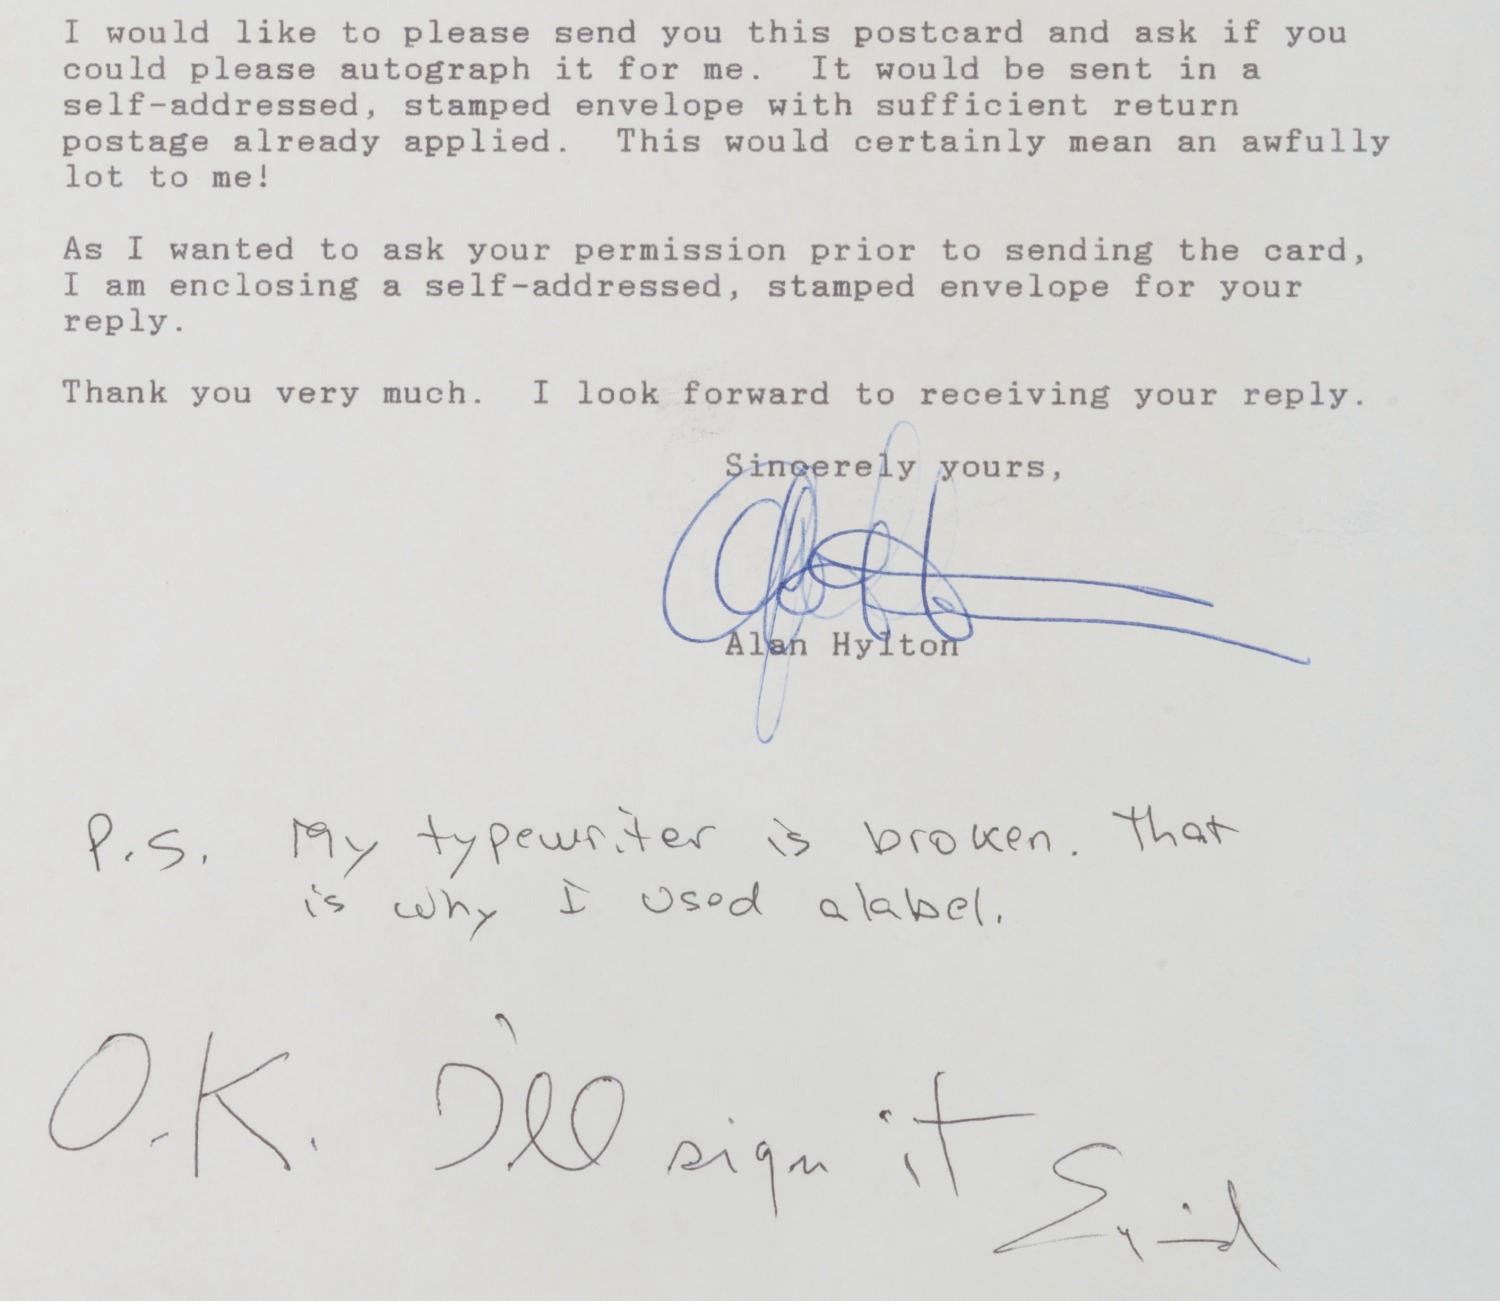 I would like to please send you this postcard and ask if you
could please autograph it for me.  It would be sent in a
self-addressed, stamped envelope with sufficient return
postage already applied.  This would certainly mean an awfully
lot to me!
As I wanted to ask your permission prior to sending the card,
I am enclosing a self-addressed, stamped envelope for your
reply.
Thank you very much.  I look forward to receiving your reply.
Sincerely yours,
Alan Hylton
P.S. My typewriter is broken. That
is why I used a label.
O.K. I'll sign it